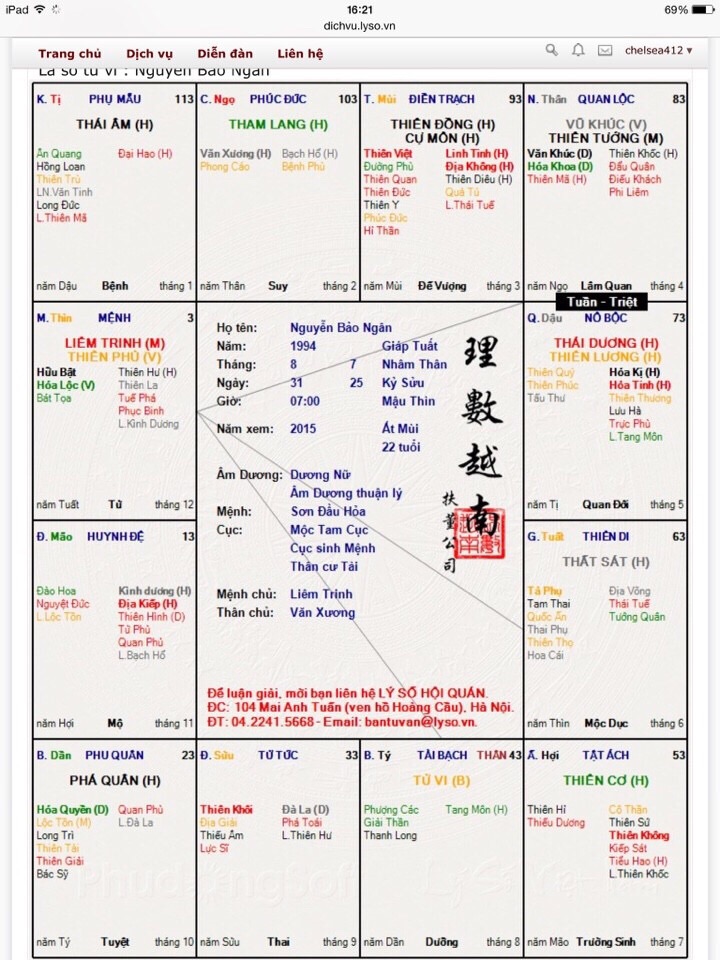 iPad
16:21
69%
dichvu.lyso.vn
Trang chủ Dịch vụ Diễn đàn Liên hệ chelsea412
Lá số tử vi : Nguyễn Bảo Ngân
K. Tị PHỤ MẪU 113
THÁI ÂM (H)
Ân Quang Đại Hao (H)
Hồng Loan
Thiên Trù
LN.Văn Tinh
Long Đức
L.Thiên Mã
năm Dậu Bệnh tháng 1
C. Ngọ PHÚC ĐỨC 103
THAM LANG (H)
Văn Xương (H) Bạch Hổ (H)
Phong Cáo Bệnh Phù
năm Thân Suy tháng 2
T. Mùi ĐIỀN TRẠCH 93
THIÊN ĐỒNG (H)
CỰ MÔN (H)
Thiên Việt Linh Tinh (H)
Đường Phù Địa Không (H)
Thiên Quan Thiên Diêu (H)
Thiên Đức Quả Tú
Thiên Y L.Thái Tuế
Phúc Đức
Hỉ Thần
năm Mùi Đế Vượng tháng 3
N. Thân QUAN LỘC 83
VŨ KHÚC (V)
THIÊN TƯỚNG (M)
Văn Khúc (D) Thiên Khốc (H)
Hóa Khoa (D) Đẩu Quân
Thiên Mã (H) Điếu Khách
Phi Liêm
năm Ngọ Lâm Quan tháng 4
Tuần - Triệt
M. Thìn MỆNH 3
LIÊM TRINH (M)
THIÊN PHỦ (V)
Hữu Bật Thiên Hư (H)
Hóa Lộc (V) Thiên La
Bát Tọa Tuế Phá
Phục Binh
L.Kình Dương
năm Tuất Tử tháng 12
Họ tên: Nguyễn Bảo Ngân
Năm: 1994 Giáp Tuất
Tháng: 8 7 Nhâm Thân
Ngày: 31 25 Kỷ Sửu
Giờ: 07:00 Mậu Thìn
Năm xem: 2015 Ất Mùi
22 tuổi
Âm Dương: Dương Nữ
Âm Dương thuận lý
Mệnh: Sơn Đầu Hỏa
Cục: Mộc Tam Cục
Cục sinh Mệnh
Thân cư Tài
Mệnh chủ: Liêm Trinh
Thân chủ: Văn Xương
理數越南
扶董公司
Để luận giải, mời bạn liên hệ LÝ SỐ HỘI QUÁN.
ĐC: 104 Mai Anh Tuấn (ven hồ Hoàng Cầu), Hà Nội.
ĐT: 04.2241.5668 - Email: bantuvan@lyso.vn.
Q. Dậu NÔ BỘC 73
THÁI DƯƠNG (H)
THIÊN LƯƠNG (H)
Thiên Quý Hóa Kị (H)
Thiên Phúc Hỏa Tinh (H)
Tấu Thư Thiên Thương
Lưu Hà
Trực Phù
L.Tang Môn
năm Tị Quan Đới tháng 5
Đ. Mão HUYNH ĐỆ 13
Đào Hoa Kình dương (H)
Nguyệt Đức Địa Kiếp (H)
L.Lộc Tồn Thiên Hình (D)
Tử Phù
Quan Phủ
L.Bạch Hổ
năm Hợi Mộ tháng 11
G. Tuất THIÊN DI 63
THẤT SÁT (H)
Tả Phụ Địa Võng
Tam Thai Thái Tuế
Quốc Ấn Tướng Quân
Thai Phụ
Thiên Thọ
Hoa Cái
năm Thìn Mộc Dục tháng 6
B. Dần PHU QUÂN 23
PHÁ QUÂN (H)
Hóa Quyền (D) Quan Phù
Lộc Tồn (M) L.Đà La
Long Trì
Thiên Tài
Thiên Giải
Bác Sỹ
năm Tý Tuyệt tháng 10
Đ. Sửu TỬ TỨC 33
Thiên Khôi Đà La (D)
Địa Giải Phá Toái
Thiếu Âm L.Thiên Hư
Lực Sĩ
năm Sửu Thai tháng 9
B. Tý TÀI BẠCH THÂN 43
TỬ VI (B)
Phượng Các Tang Môn (H)
Giải Thần
Thanh Long
năm Dần Dưỡng tháng 8
Ấ. Hợi TẬT ÁCH 53
THIÊN CƠ (H)
Thiên Hỉ Cô Thần
Thiếu Dương Thiên Sứ
Thiên Không
Kiếp Sát
Tiểu Hao (H)
L.Thiên Khốc
năm Mão Trường Sinh tháng 7